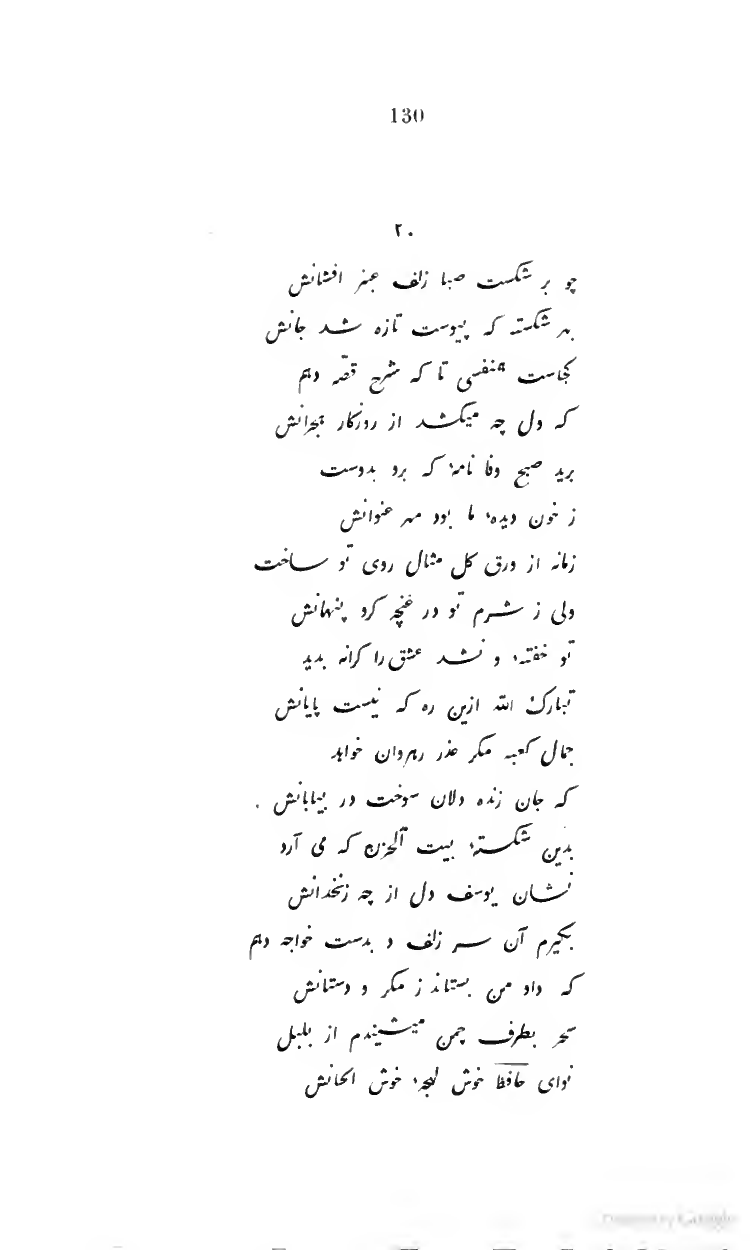 130
۲۰
چو بر شکست صبا زلف عنبر افشانش
بهر شکسته که پیوست تازه شد جانش
کجاست همنفسی تا که شرح قصّه دهم
که دل چه میکشد از روزکار هجرانش
برید صبح وفا نامهٔ که برد بدوست
ز خون دیدهٔ ما بود مهر عنوانش
زمانه از ورق کل مثال روی تو ساخت
ولی ز شرم تو در غنچه کرد پنهانش
تو خفتهٔ و نشد عشق را کرانه بدید
تبارک الله ازین ره که نیست پایانش
جمال کعبه مکر عذر رهروان خواهد
که جان زنده دلان سوخت در بیابانش .
بدین شکستهٔ بیت آلحزن که می آرد
نشان یوسف دل از چه زنخدانش
بکیرم آن سر زلف و بدست خواجه دهم
که داد من بستاند ز مکر و دستانش
سحر بطرف چمن میشنیدم از بلبل
نوای حافظ خوش لهجهٔ خوش الحانش
Digitized by Google